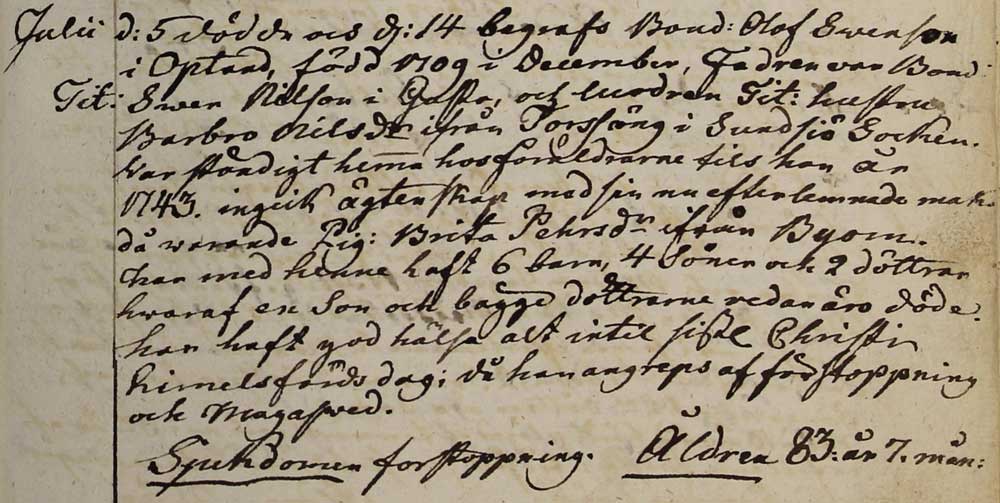 Julii d: 5 dödde och d: 14 begrafs Bond: Olof Swenson
i Optand, född 1709 i December, Fadren var Bond:
Tit: Swen Nilson i Gasta, och modren Tit: hustru
Barbro Nilsdr ifrån Torssäng i Sundsjö Sochen.
Var ständigt hemma hos föräldrarne tils han år
1743. ingick ägtenskap med sin nu efterlemnade mak
då warande Pig: Brita Pehrsdr ifrån Byom.
har med henne haft 6 barn, 4 Söner och 2 döttrar
hwaraf en Son och bägge döttrarne redan äro döde.
han haft god hälsa alt intil sistl Christi
himelsfärds dag; då han angreps af förstoppning
och Magasved.
Sjukdomen forstoppning. Åldren 83: år 7. mån: